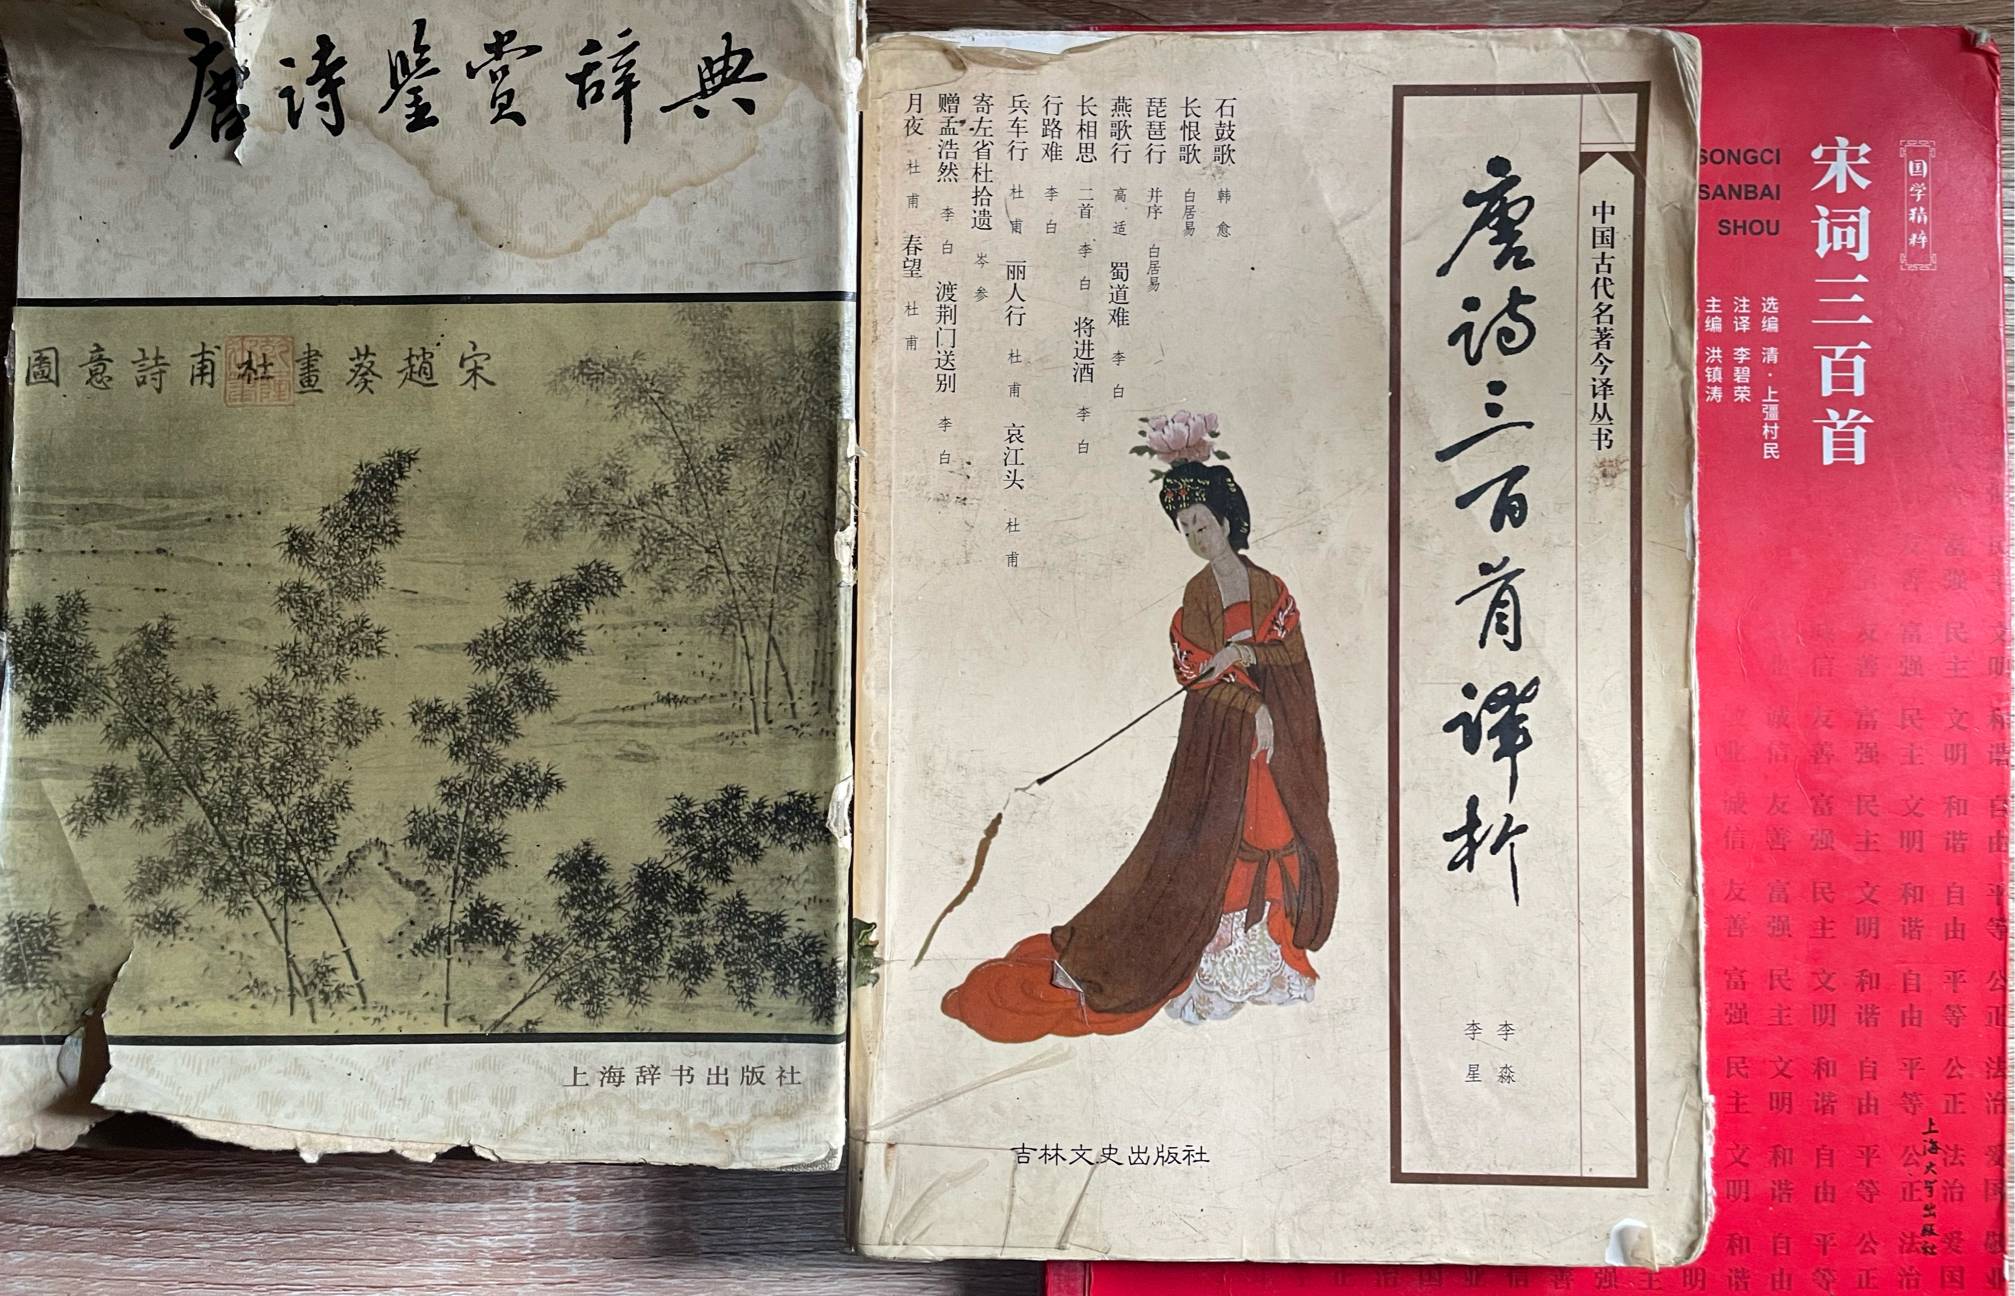 唐诗鉴赏辞典
宋趙葵畫杜甫詩意圖
上海辞书出版社
中国古代名著今译丛书
唐诗三百首译析
李淼
李星
石鼓歌 韩愈
长恨歌 白居易
琵琶行 并序 白居易
燕歌行 高适 蜀道难 李白
长相思 二首 李白 将进酒 李白
行路难 李白
兵车行 杜甫 丽人行 杜甫 哀江头 杜甫
寄左省杜拾遗 岑参
赠孟浩然 李白 渡荆门送别 李白
月夜 杜甫 春望 杜甫
吉林文史出版社
国学精粹
宋词三百首
SONGCI
SANBAI
SHOU
选编 清·上彊村民
注译 李碧荣
主编 洪镇涛
上海大学出版社